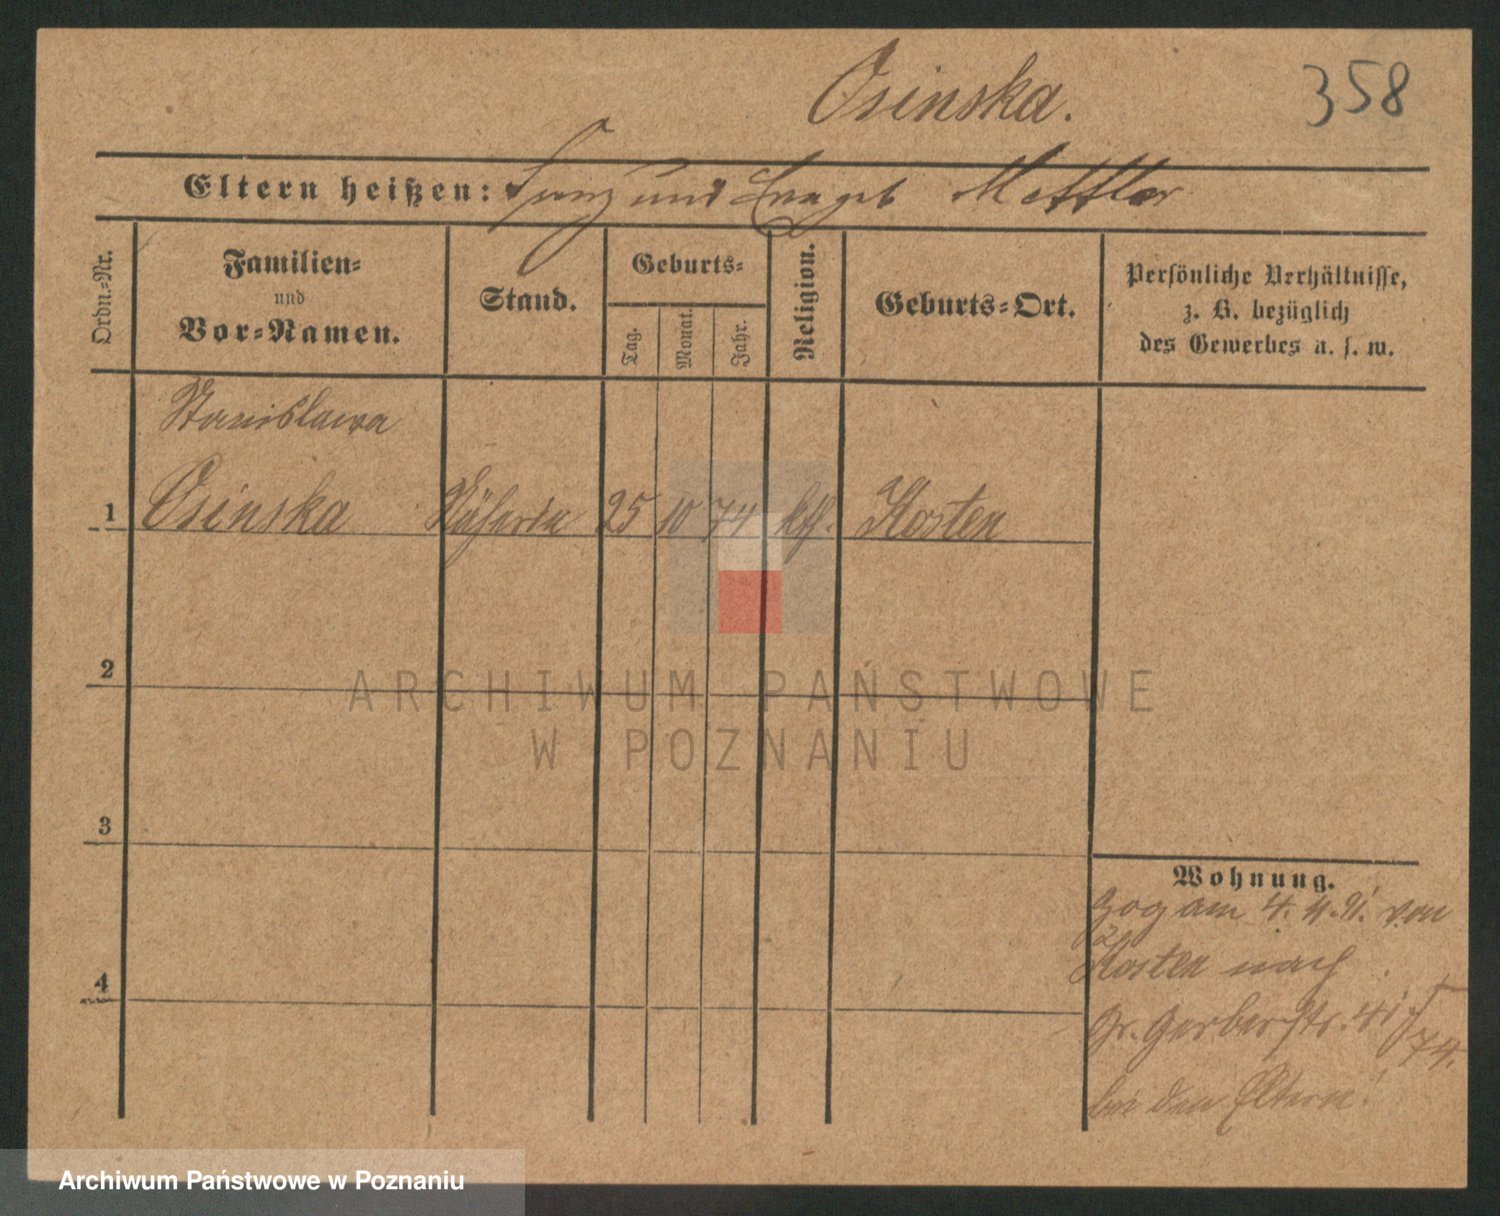 Osinska.
358
Eltern heißen: Franz und Mettler
Ordn.-Nr.
Familien- und Vor-Namen.
Stand.
Geburts-
Tag.
Monat.
Jahr.
Religion.
Geburts-Ort.
Persönliche Verhältnisse,
z. B. bezüglich
des Gewerbes u. s. w.
Stanislawa
1 Osinska Näherin 25 10 74 kth. Kosten
2
ARCHIWUM PAŃSTWOWE
W POZNANIU
3
4
Wohnung.
Zog am 4. 4. 91. von
Kosten nach
Gr. Gerberstr. 41
74.
bei den Eltern!
Archiwum Państwowe w Poznaniu